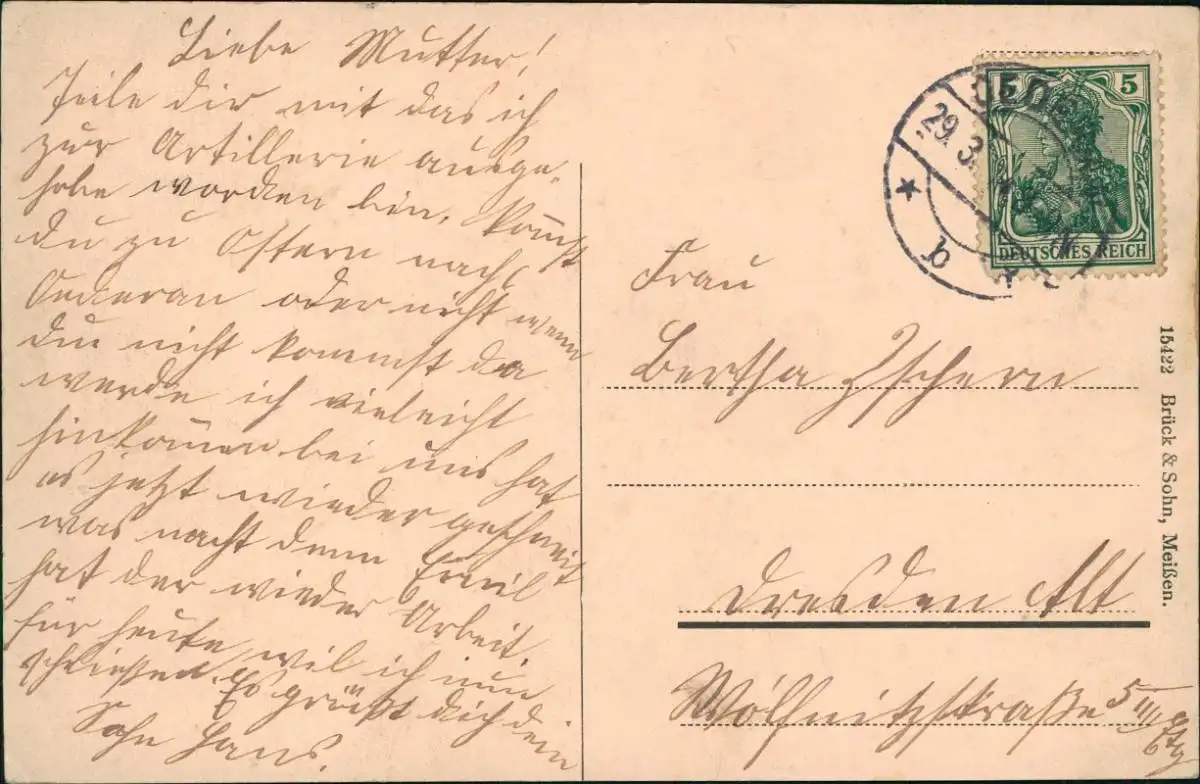 Liebe Mutter!
Teile dir mit das ich
zur Artillerie ausge-
hobe worden bin. Kommst
du zu Ostern nach
Oederan oder nicht wenn
du nicht kommst da
werde ich vieleicht
hinkommen bei uns hat
es jetzt wieder geschneit
was macht denn Emil
hat der wieder Arbeit.
für heute wil ich nun
schließen. Es grüßt dich dein
Sohn Hans.
5 5
DEUTSCHES REICH
29.3.
b
Frau
Bertha Zschern
Dresden Alt
Wölfnitzstraße 5 III Etg
15422 Brück & Sohn, Meißen.